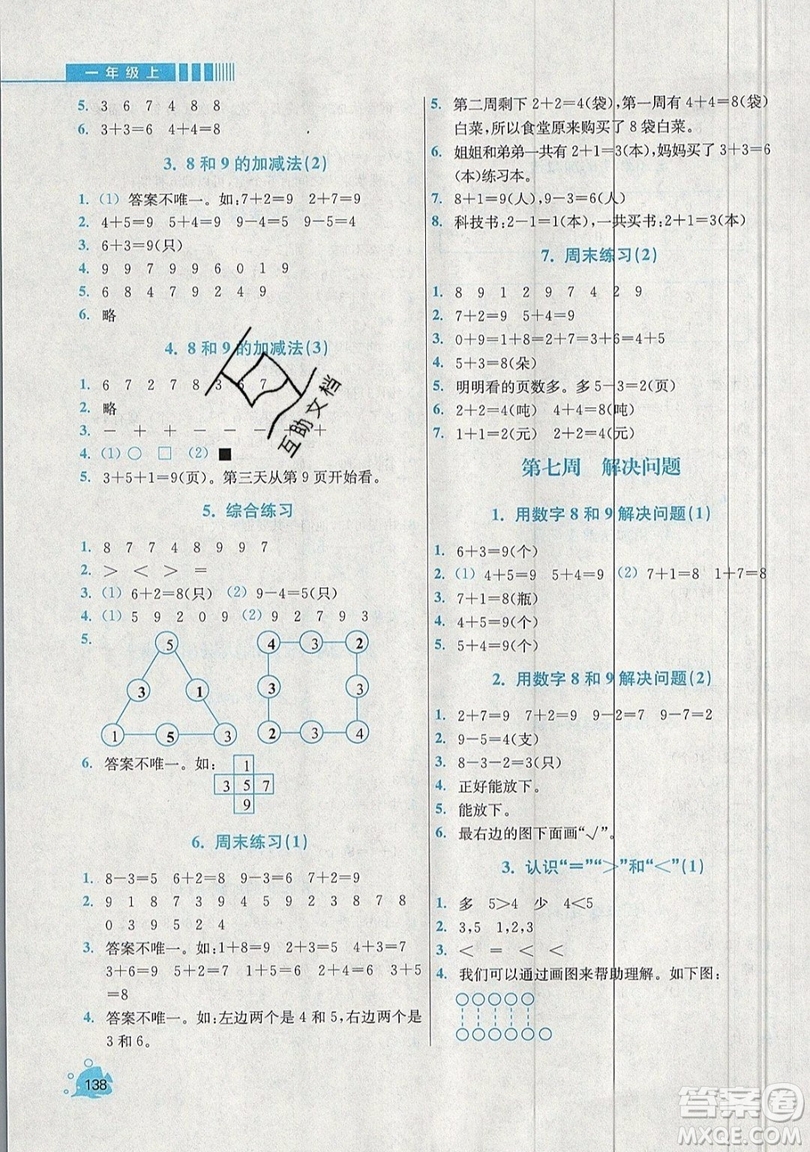 一年级上
5. 3 6 7 4 8 8
6. 3+3=6 4+4=8
3. 8 和 9 的加减法(2)
1. (1) 答案不唯一。如:7+2=9 2+7=9
2. 4+5=9 5+4=9 9-4=5 9-5=4
3. 6+3=9(只)
4. 9 9 7 9 9 6 0 1 9
5. 6 8 4 7 9 2 4 9
6. 略
4. 8 和 9 的加减法(3)
1. 6 7 2 7 8 3 6 7
2. 略
3. - + + - - - + +
4. (1) ○ □ □ (2) ■
5. 3+5+1=9(页)。第三天从第 9 页开始看。
5. 综合练习
1. 8 7 7 4 8 9 9 7
2. > < > =
3. (1) 6+2=8(只) (2) 9-4=5(只)
4. (1) 5 9 2 0 9 (2) 9 2 7 9 3
5.
5
3 1
1 5 3
4 3 2
3 3
2 3 4
6. 答案不唯一。如:
1
3 5 7
9
6. 周末练习(1)
1. 8-3=5 6+2=8 9-3=6 7+2=9
2. 9 8 6 7 4 4 1 9 2 3 9 3 8 7 8
0 3 9 5 2 4
3. 答案不唯一。如:1+8=9 2+3=5
3+6=9 5+2=7 3+3=6 4+2=6 3+5
=8
4. 答案不唯一。如:左边两个是 4 和 5,右边两个是
3 和 6。
138
5. 第二周剩下 2+2=4(袋),第一周有 4+4=8(袋)
白菜,所以食堂原来购买了 8 袋白菜。
6. 姐姐和弟弟一共有 2+1=3(本),妈妈买了 3+3=6
(本)练习本。
7. 8+1=9(人),9-3=6(人)
8. 科技书:2-1=1(本),一共买书:2+1=3(本)
7. 周末练习(2)
1. 8 9 1 2 9 7 4 2 9
2. 7+2=9 5+4=9
3. 0+9=1+8=2+7=3+6=4+5
4. 5+3=8(朵)
5. 明明看的页数多。多 5-3=2(页)
6. 2+2=4(吨) 4+4=8(吨)
7. 1+1=2(元) 2+2=4(元)
第七周 解决问题
1. 用数字 8 和 9 解决问题(1)
1. 6+3=9(个)
2. (1) 4+5=9 5+4=9 (2) 7+1=8 1+7=8
3. 7+1=8(瓶)
4. 4+5=9(个)
5. 5+4=9(个)
2. 用数字 8 和 9 解决问题(2)
1. 2+7=9 7+2=9 9-2=7 9-7=2
2. 9-5=4(支)
3. 8-3-2=3(只)
4. 正好能放下。
5. 能放下。
6. 最右边的图下面画“√”。
3. 认识“=”“>”和“<”(1)
1. 多 5>4 少 4<5
2. 3,5 1,2,3
3. < = < <
4. 我们可以通过画图来帮助理解。如下图:
互助文档
答案圈
MXQE.COM